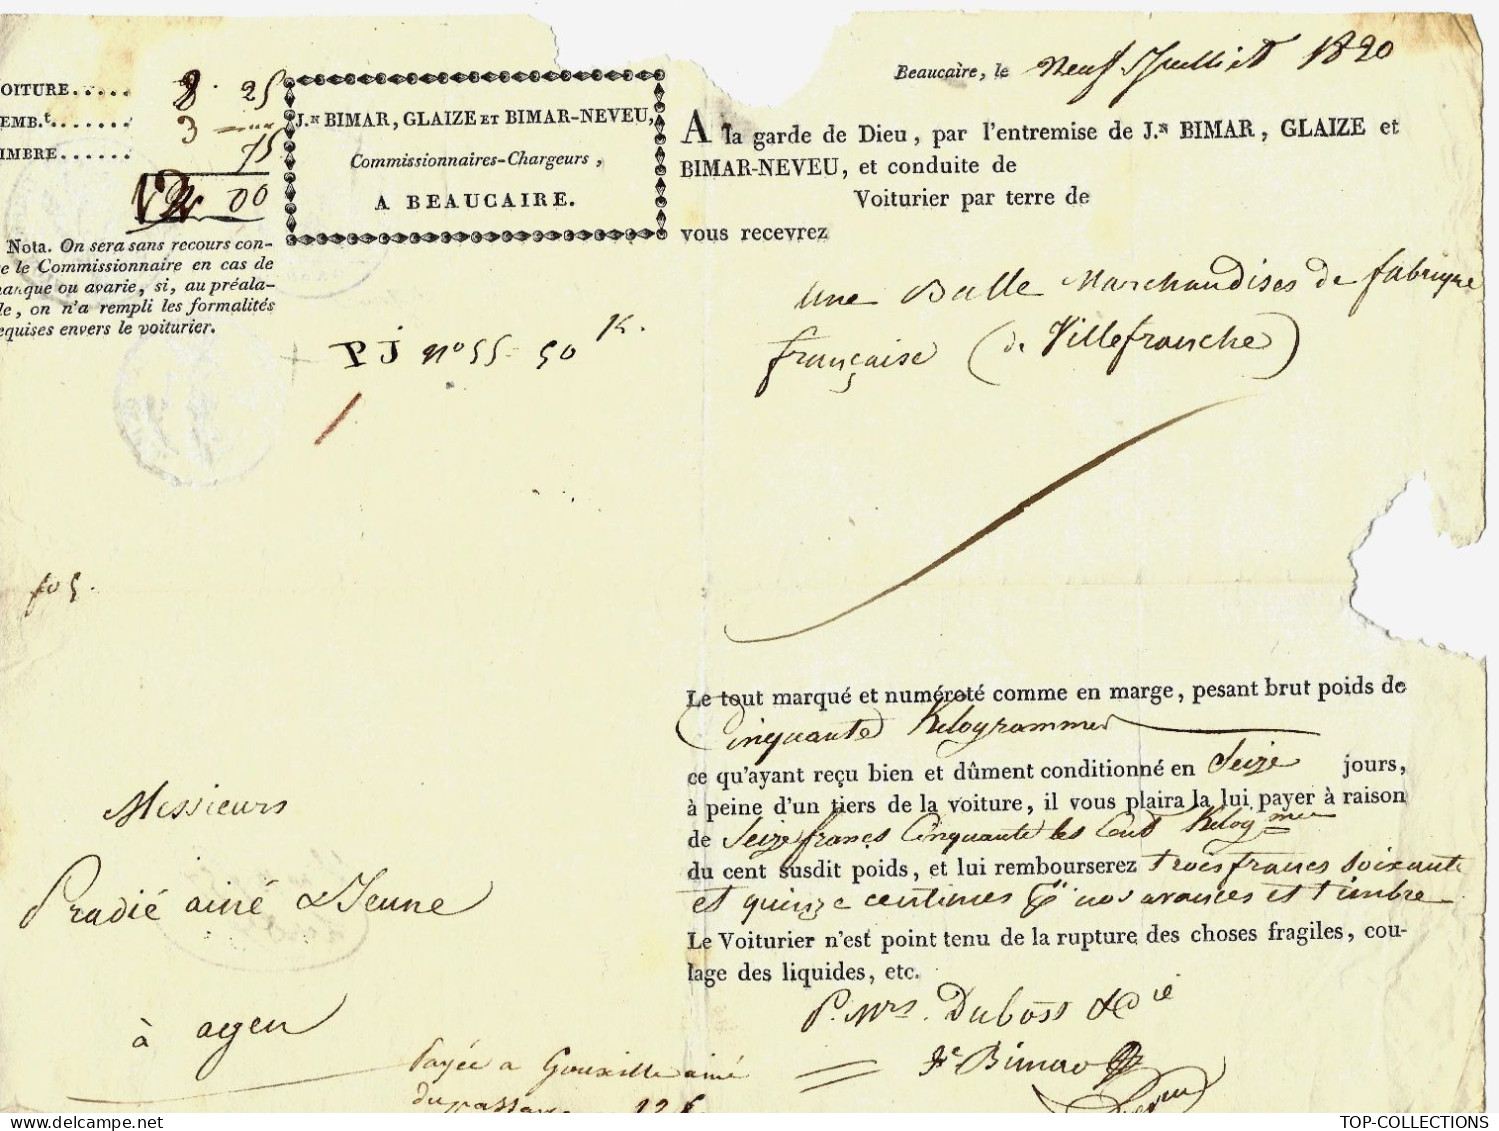 OITURE..... 8. 25
EMB.t....... 3
IMBRE...... 75
00
Nota. On sera sans recours con-
e le Commissionnaire en cas de
anque ou avarie, si, au préala-
le, on n'a rempli les formalités
equises envers le voiturier.
J.N BIMAR, GLAIZE ET BIMAR-NEVEU,
Commissionnaires-Chargeurs,
A BEAUCAIRE.
Beaucaire, le Neuf Juillet 1820
A la garde de Dieu, par l'entremise de J.N BIMAR, GLAIZE et
BIMAR-NEVEU, et conduite de
Voiturier par terre de
vous recevrez
une Balle Marchandises de fabrique
française (de Villefranche)
PJ n° 55 - 50 K.
Le tout marqué et numéroté comme en marge, pesant brut poids de
Cinquante Kilogrammes
ce qu'ayant reçu bien et dûment conditionné en Seize jours,
à peine d'un tiers de la voiture, il vous plaira la lui payer à raison
de Seize francs Cinquante les Cent Kilogmes
du cent susdit poids, et lui rembourserez trois francs soixante
et quinze centimes pr nos avances et timbre
Le Voiturier n'est point tenu de la rupture des choses fragiles, cou-
lage des liquides, etc.
Messieurs
Pradié ainé & Jeune
à agen
P. Mrs. Duboss & Cie
Bimar
Payée a ainé
TOP-COLLECTIONS